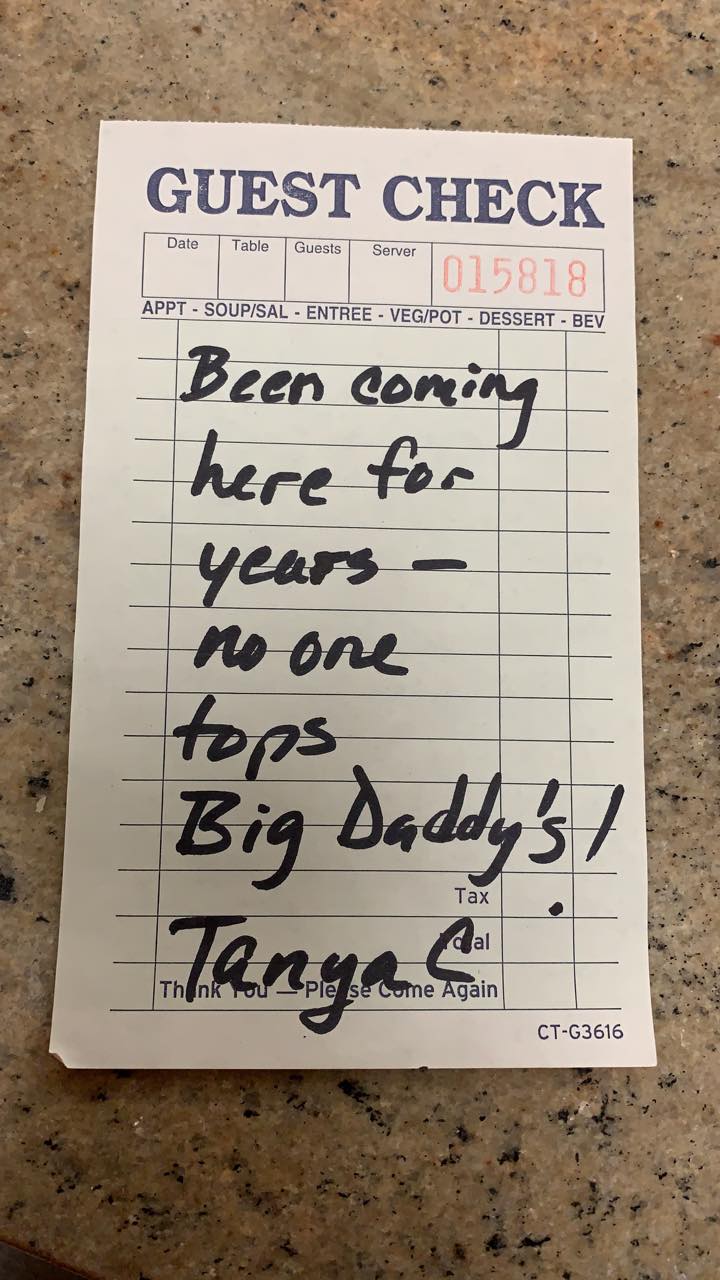 GUEST CHECK
Date Table Guests Server 015818
APPT - SOUP/SAL - ENTREE - VEG/POT - DESSERT - BEV
Been coming
here for
years —
no one
tops
Big Daddy's!
Tax
Total
Tanya C
Thank You — Please Come Again
CT-G3616